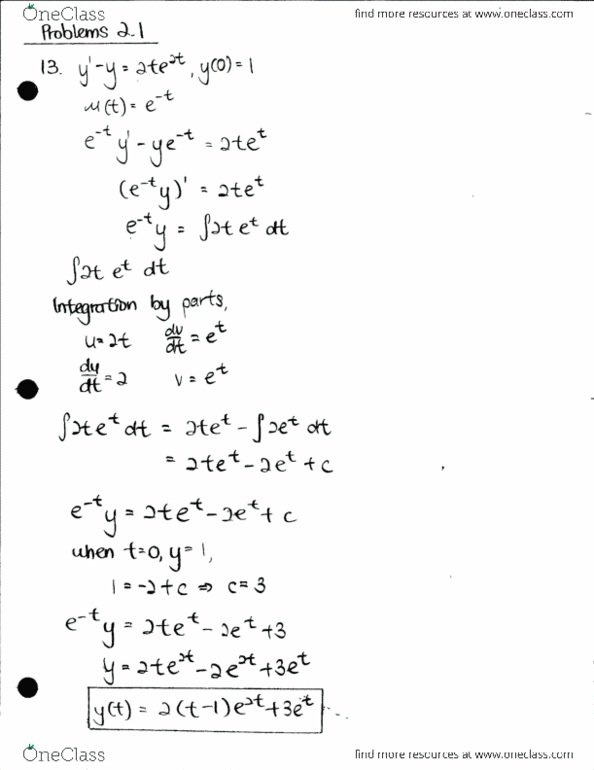 OneClass find more resources at www.oneclass.com
Problems 2.1
13. y' - y = 2te^2t, y(0) = 1
μ(t) = e^-t
e^-t y' - ye^-t = 2te^t
(e^-t y)' = 2te^t
e^-t y = ∫2t e^t dt
∫2t e^t dt
Integration by parts,
u = 2t dv/dt = e^t
du/dt = 2 v = e^t
∫2te^t dt = 2te^t - ∫2e^t dt
= 2te^t - 2e^t + c
e^-t y = 2te^t - 2e^t + c
when t=0, y=1,
1 = -2 + c ⇒ c = 3
e^-t y = 2te^t - 2e^t + 3
y = 2te^2t - 2e^2t + 3e^t
y(t) = 2(t-1)e^2t + 3e^t
OneClass find more resources at www.oneclass.com